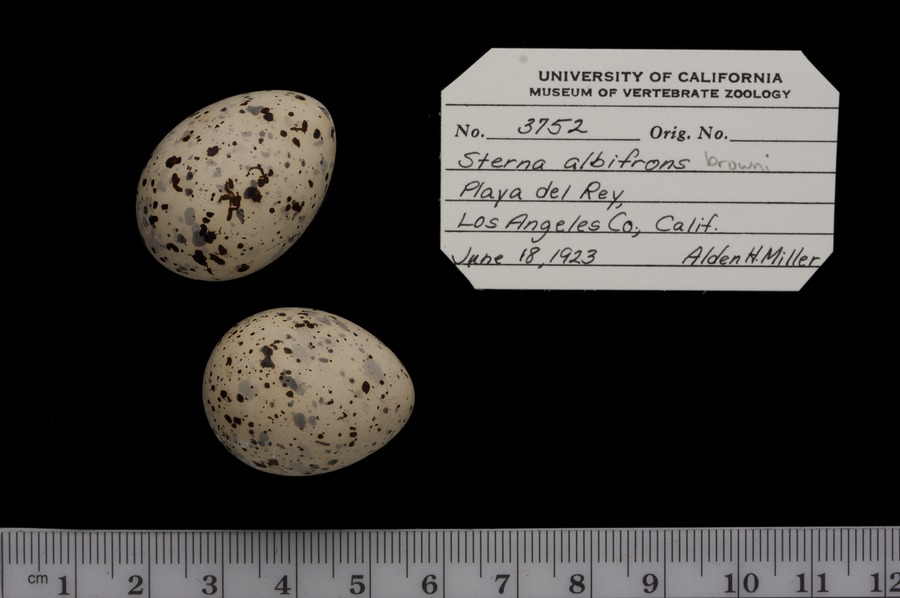 UNIVERSITY OF CALIFORNIA
MUSEUM OF VERTEBRATE ZOOLOGY
No. 3752 Orig. No.
Sterna albifrons browni
Playa del Rey,
Los Angeles Co., Calif.
June 18, 1923 Alden H. Miller
cm 1 2 3 4 5 6 7 8 9 10 11 12